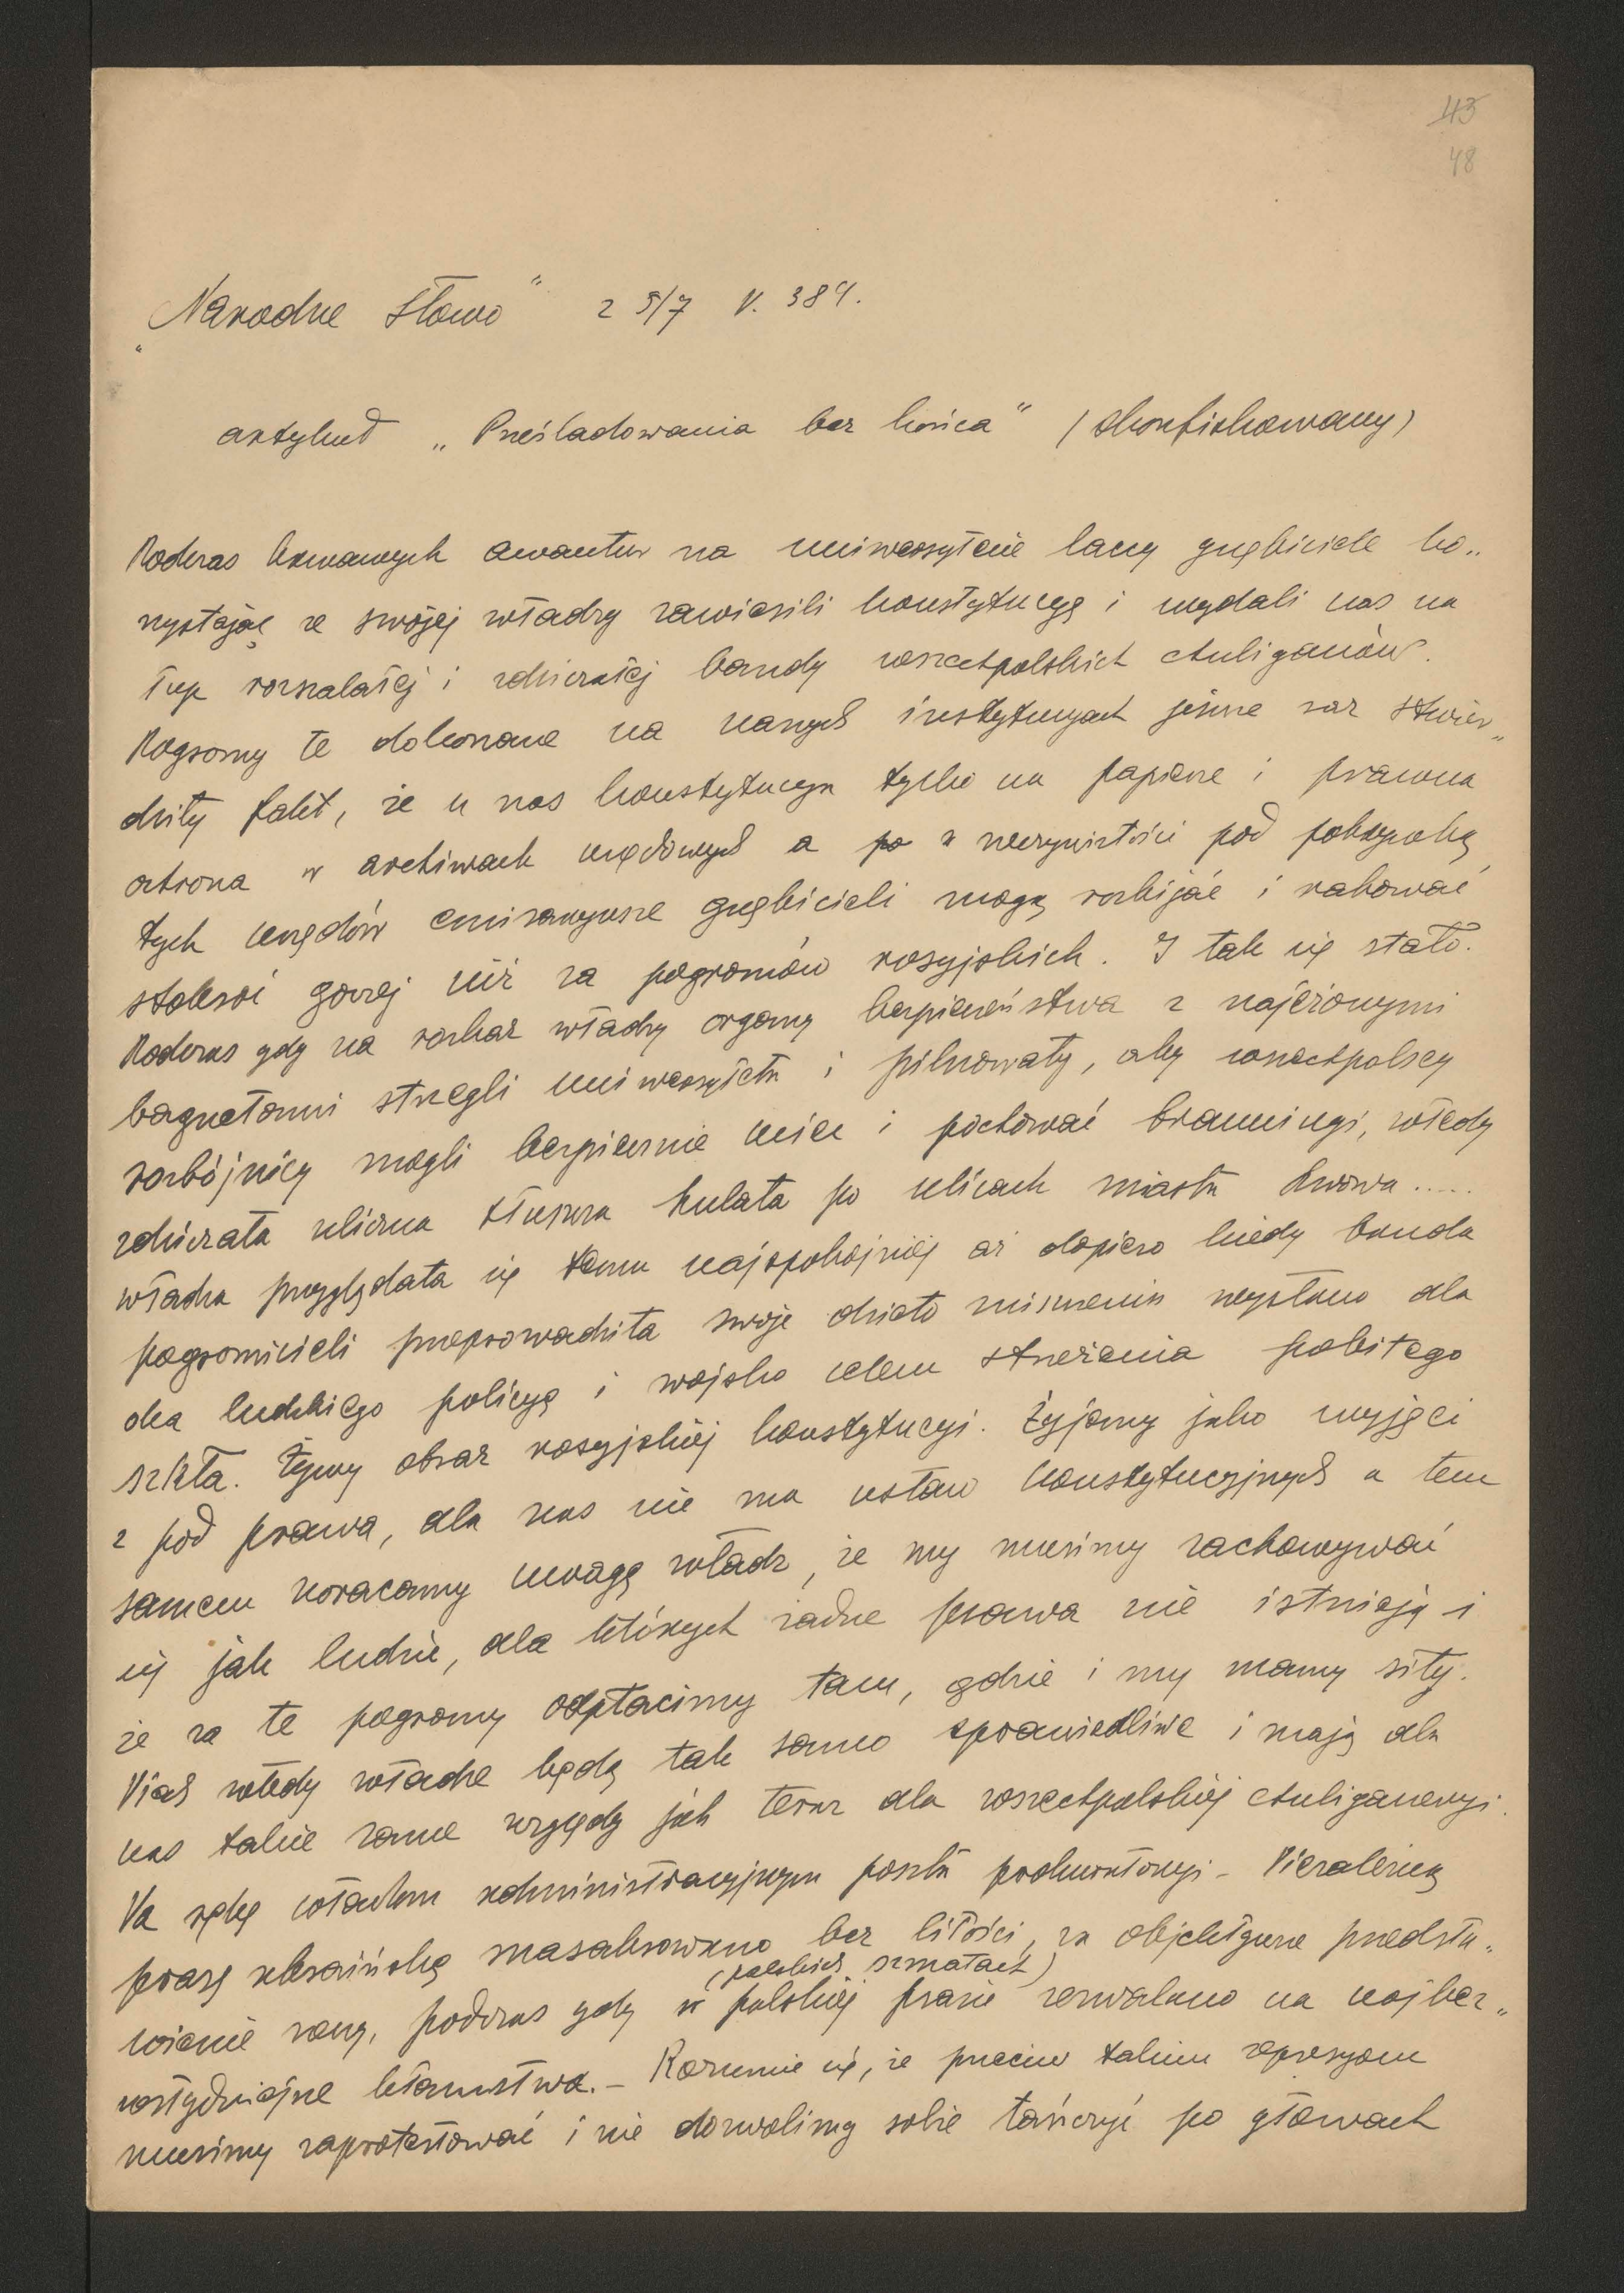 43
48
„Narodne Słowo" z 5/7 N. 384.
artykuł „Prześladowania bez końca" (skonfiskowany)
Podczas krwawych awantur na uniwersytecie laccy gnębiciele ko„
rzystając ze swojej władzy zawiesili konstytucyę i wydali nas na
łup rozszalałej i zdziczałej bandy wszechpolskich chuliganów.
Pogromy te dokonane na naszych instytucyach jeszcze raz stwier„
dziły fakt, że u nas konstytucya tylko na papierze i prawna
ochrona w archiwach urzędowych a po w rzeczywistości pod pokrywką
tych urzędów emisaryusze gnębicieli mogą rozbijać i rabować
stokroć gorzej niż za pogromów rosyjskich. I tak się stało.
Podczas gdy na rozkaz władzy organy bezpieczeństwa z najeżonymi
bagnetami strzegli uniwersytetu i pilnowały, aby wszechpolscy
rozbójnicy mogli bezpiecznie uciec i pochować brauningi, wtedy
zdziczała uliczna tłuszcza hulała po ulicach miasta Lwowa.....
władza przyglądała się temu najspokojniej aż dopiero kiedy banda
pogromicieli przeprowadziła swoje dzieło zniszczenia wysłano dla
oka ludzkiego policyę i wojsko celem strzeżenia pobitego
szkła. Żywy obraz rosyjskiej konstytucyi. Żyjemy jako wyjęci
z pod prawa, dla nas nie ma ustaw konstytucyjnych a tem
samem zwracamy uwagę władz, że my musimy zachowywać
się jak ludzie, dla których żadne prawa nie istnieją i
że za te pogromy odpłacimy tam, gdzie i my mamy siły.
Niech wtedy władze będą tak samo sprawiedliwe i mają dla
nas takie same względy jak teraz dla wszechpolskiej chuliganeryi.
Na rękę władzom administracyjnym poszła prokuratorya - Niezależną
prasę ukraińską masakrowano bez litości, za objektywne przedsta„
(polskich szmatach)
wienie rzeczy, podczas gdy w polskiej prasie zezwalano na najbez„
wstydniejsze kłamstwa. - Rozumie się, że przeciw takim represyom
musimy zaprotestować i nie dozwolimy sobie tańczyć po głowach